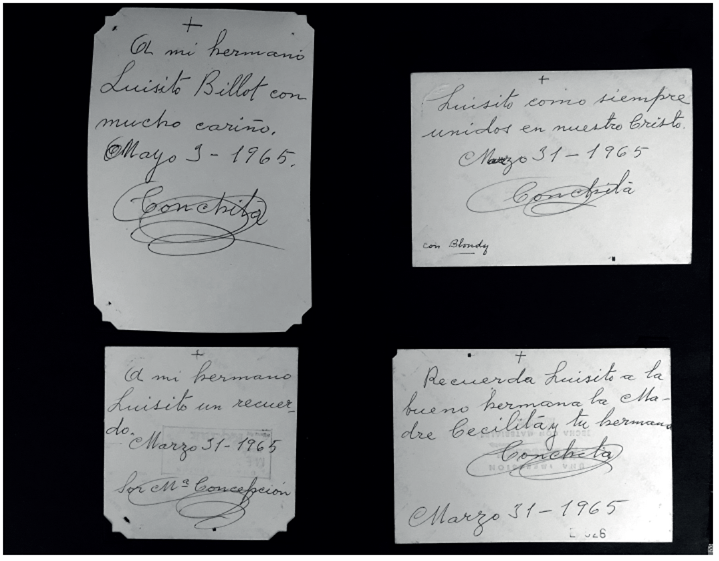 A mi hermano
Luisito Billot con
mucho cariño.
Mayo 3 - 1965.
Conchita
Luisito como siempre
unidos en nuestro Cristo.
Marzo 31 - 1965
Conchita
con Blondy
A mi hermano
Luisito un recuer-
do.
Marzo 31 - 1965
Sor Mª Concepción
Recuerda Luisito a la
bueno hermana la Ma-
dre Cecilita y tu hermana
Conchita
Marzo 31 - 1965